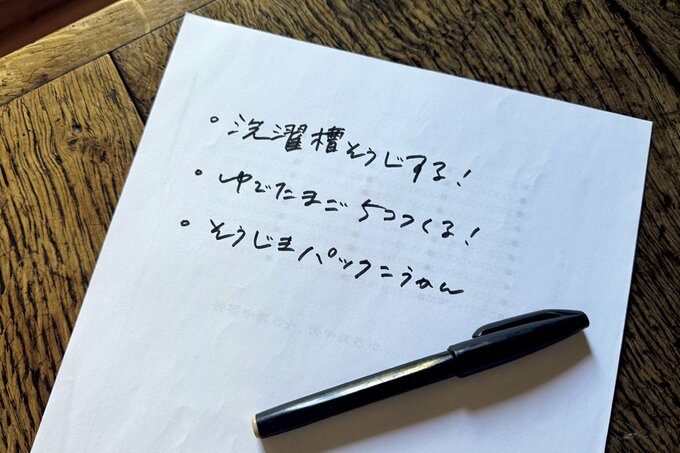 ・洗濯槽そうじする!
・ゆでたまご5コつくる!
・そうじきパックこうかん